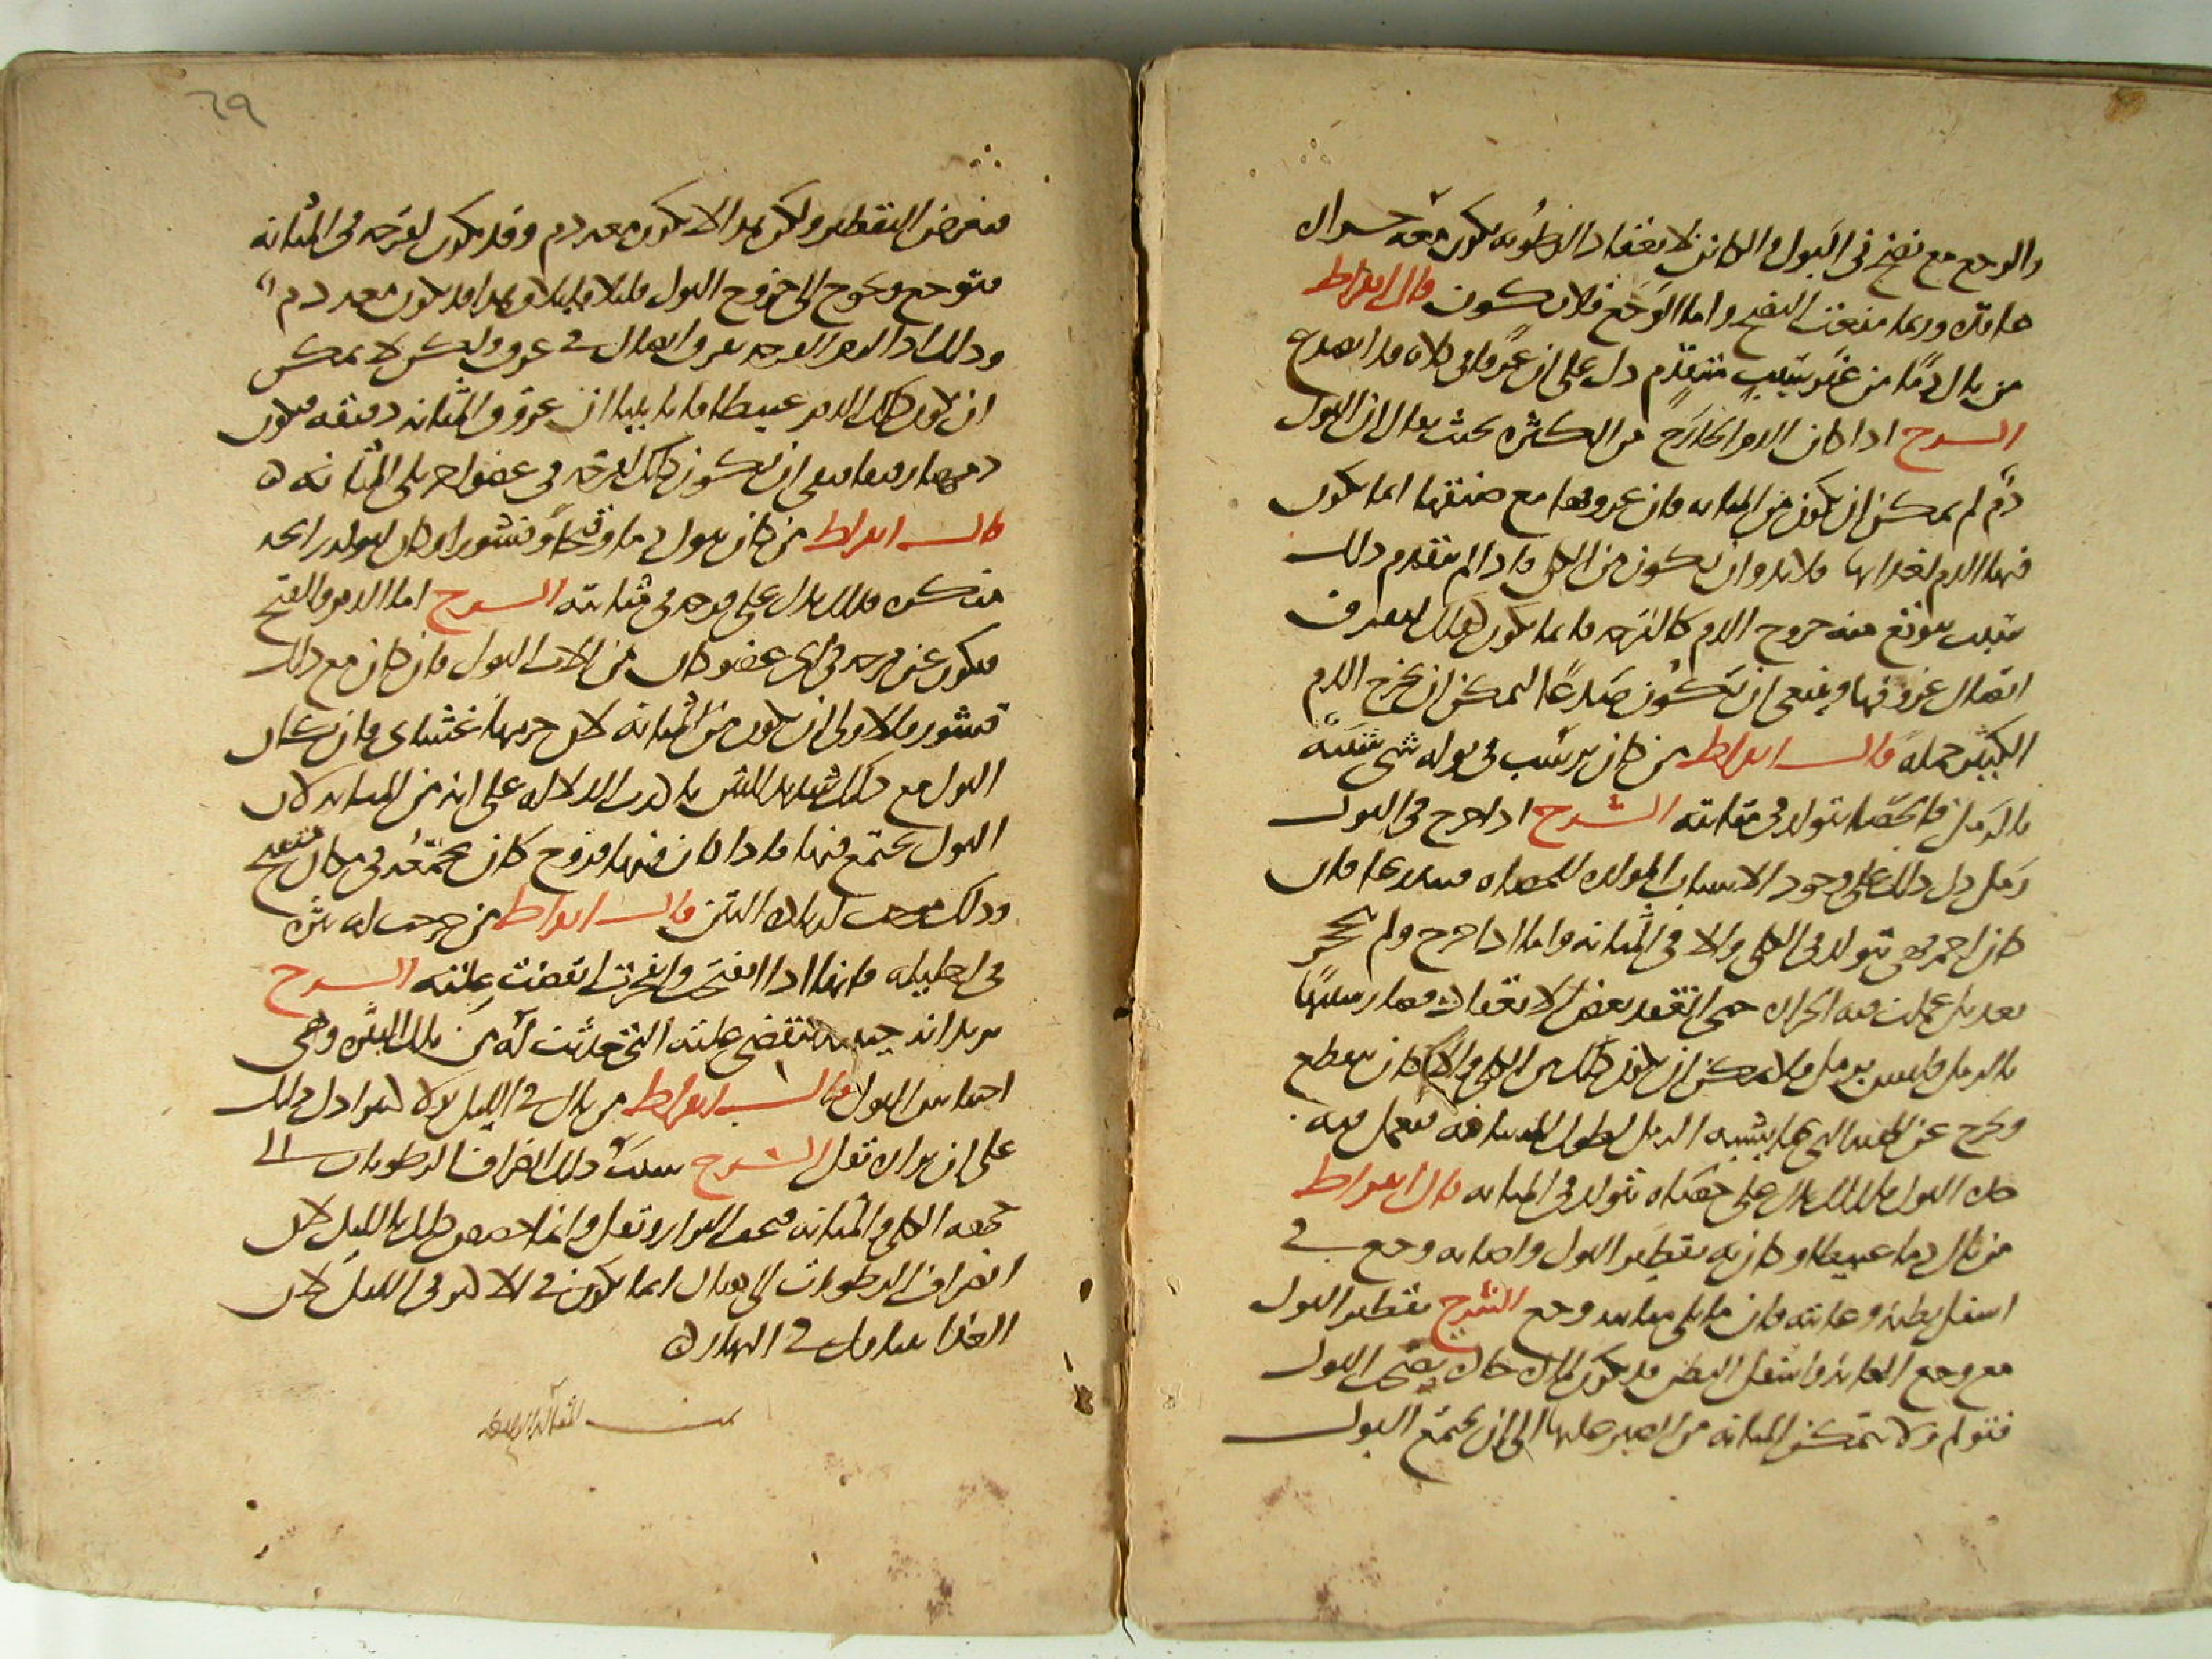 والوجع مع نضج في البول والكائن لانعقاد الرطوبة يكون معه حرارة
هاهنا وربما منعت النضج واما الوجع فلا يكون قال ابقراط
من بال دما من غير سبب متقدم دل على ان عرقا في كلاه قد انصدع
الشرح اذا كان الدم الخارج من الكثرة بحيث يقال ان البول
دم لم يمكن ان يكون من المثانة فان عروقها مع ضيقها انما يكون
فيها الدم لغذائها فلابد وان يكون من الكلى واذا لم يتقدم ذلك
سبب يتوقع منه خروج الدم كالقرحة فانما يكون ذلك لتفرق
اتصال عروقها وينبغي ان يكون صدعا ليمكن ان يخرج الدم
الكثير جملة قال ابقراط من كان يرسب في بوله شيء شبيه
بالرمل فالحصا يتولد في مثانته الشرح اذا خرج في البول
رمل دل ذلك على وجود الاسباب المولدة للحصاة فان
كان احمر فهي تتولد في الكلى والا في المثانة واما اذا خرج ولم يتحجر
بعد بل عملت فيه الحرارة حتى انعقد بعض الانعقاد فصار شبيها
بالرمل وليس برمل فلا يمكن ان يكون ذلك من الكلى والا كان يتقطع
ويخرج عن الهيئة التي بها يشبه الرمل لطول المسافة فيعمل فيه
حدة البول فلذلك يدل على حصاة تتولد في المثانة قال ابقراط
من بال دما عبيطا وكان به تقطير البول واصابه وجع في
اسفل بطنه وعانته فان ما يلي مثانته وجع الشرح تقطير البول
مع وجع العانة واسفل البطن قد يكون لحرارة البول
فتولم ولا تتمكن المثانة من الصبر عليها الى ان يجتمع البول
٦٩
فيعرض التقطير ولكن هذا لا يكون معه دم وقد يكون لقرحة في المثانة
فتوجع ويحوج الى خروج البول قليلا قليلا وهذا قد يكون معه دم
وذلك اذا القرحة تفرق اتصال في عروق ولكن لا يمكن
ان يكون ذلك الدم عبيطا فانا بينا ان عروق المثانة دقيقة فيكون
دمها رقيقا فبقي ان يكون ذلك لقرحة في عضو اخر يلي المثانة
قال ابقراط من كان يبول دما وقيحا وقشورا وكان لبوله رائحة
منكرة فذلك يدل على قرحة في مثانته الشرح اما الدم والقيح
فيكون عن قرحة في اي عضو كان من الات البول فان كان مع ذلك
قشور فالاولى ان يكون من المثانة لان جرمها غشائي فان كان
البول مع ذلك شديد النتن تاكدت الدلالة على انه من المثانة لان
البول يجتمع فيها فاذا كان فيها قروح كان مجتمعه في مكان متقيح
وذلك موجب لزيادة النتن قال ابقراط من خرجت له بثرة
في احليله فانها اذا انفتحت وانفجرت انقضت علته الشرح
يريد انه حينئذ تنقضي علته التي حدثت له من تلك البثرة وهي
احتباس البول قال ابقراط من بال في الليل بولا كثيرا دل ذلك
على ان برازه يقل الشرح سبب ذلك انصراف الرطوبات الى
جهة الكلى والمثانة فيجف البراز ويقل وانما خصص ذلك بالليل لان
انصراف الرطوبات الى هناك انما يكون في الاكثر في الليل لان
الغذا يتناول في النهار
تمت المقالة الرابعة